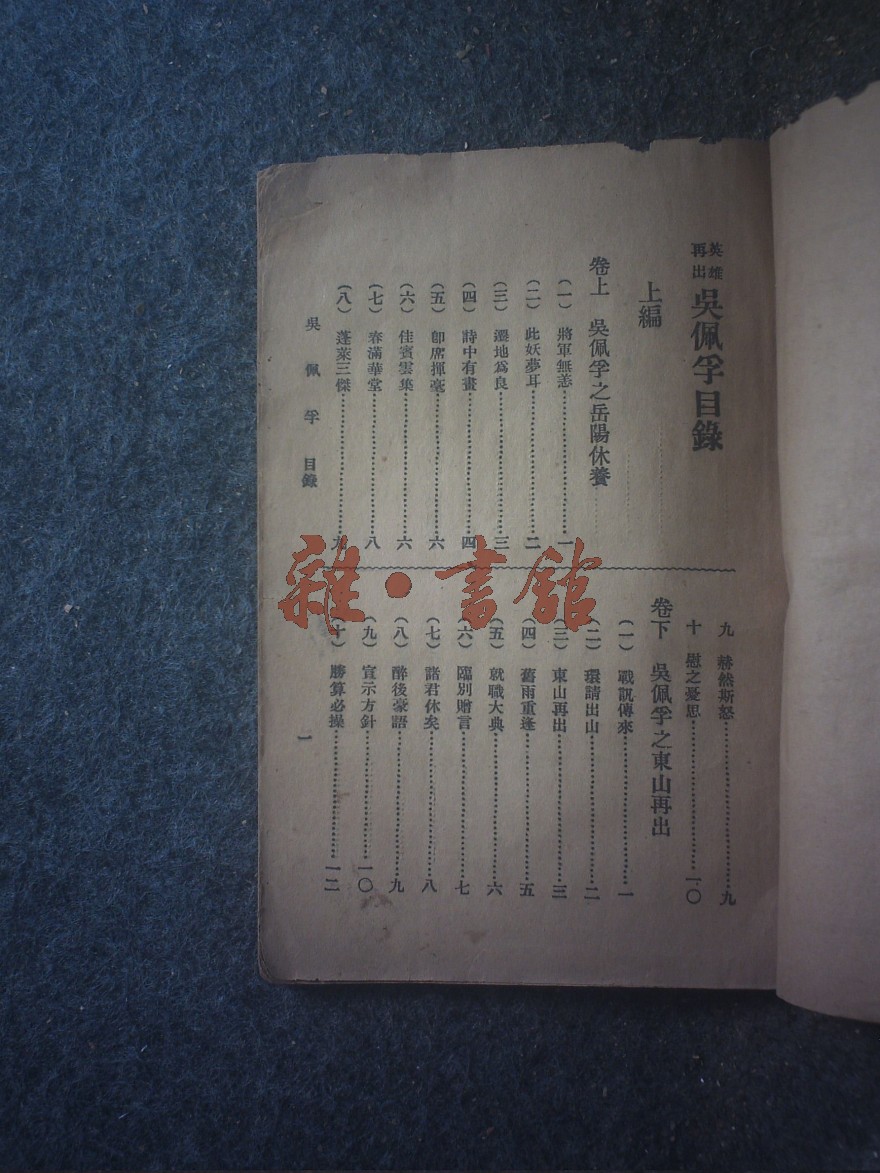 英雄再出 吳佩孚目錄
上編
卷上 吳佩孚之岳陽休養
(一) 將軍無恙 一
(二) 此妖夢耳 二
(三) 遷地爲良 三
(四) 詩中有畫 四
(五) 卽席揮毫 六
(六) 佳賓雲集 六
(七) 春滿華堂 八
(八) 蓬萊三傑 九
九 赫然斯怒 九
十 慰之憂思 一〇
卷下 吳佩孚之東山再出
(一) 戰訊傳來 一
(二) 環請出山 二
(三) 東山再出 三
(四) 舊雨重逢 五
(五) 就職大典 六
(六) 臨別贈言 七
(七) 諸君休矣 八
(八) 醉後豪語 九
(九) 宣示方針 一〇
(十) 勝算必操 一二
吳佩孚 目錄
一
雜·書館